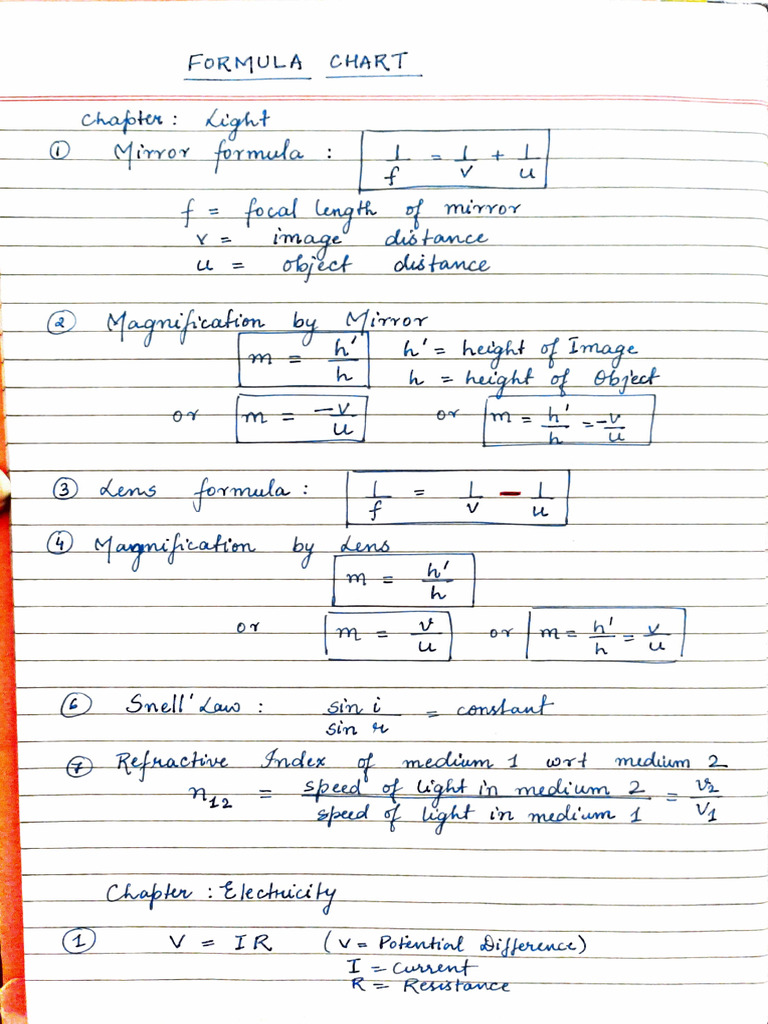 FORMULA CHART
Chapter: Light
① Mirror formula : 1/f = 1/v + 1/u
f = focal length of mirror
v = image distance
u = object distance
② Magnification by Mirror
m = h'/h h' = height of Image
h = height of Object
or m = -v/u or m = h'/h = -v/u
③ Lens formula : 1/f = 1/v - 1/u
④ Magnification by Lens
m = h'/h
or m = v/u or m = h'/h = v/u
⑥ Snell' Law : sin i / sin r = constant
⑦ Refractive Index of medium 1 wrt medium 2
n12 = speed of light in medium 2 / speed of light in medium 1 = v2/v1
Chapter : Electricity
① V = IR (V = Potential Difference)
I = Current
R = Resistance